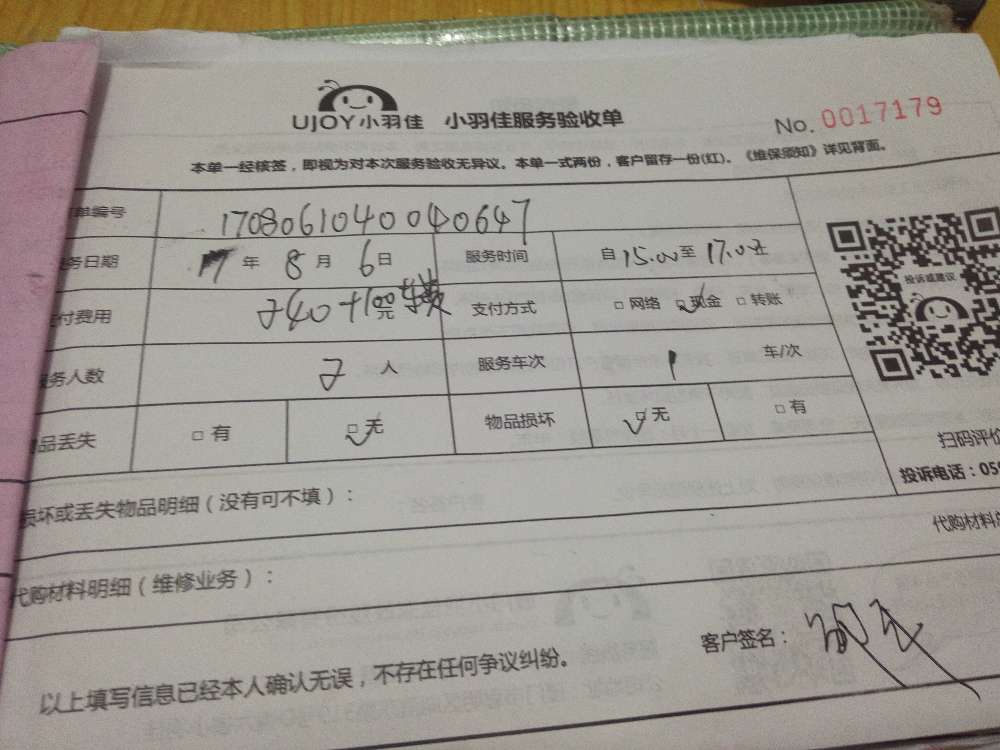 UJOY小羽佳 小羽佳服务验收单
No. 0017179
本单一经核签，即视为对本次服务验收无异议。本单一式两份，客户留存一份(红)。《维保须知》详见背面。
单编号 1708061040040647
务日期 17 年 8 月 6 日 服务时间 自 15:00 至 17:00
付费用 240+100元 支付方式 □ 网络 ☑ 现金 □ 转账
务人数 2 人 服务车次 1 车/次
品丢失 □ 有 ☑ 无 物品损坏 ☑ 无 □ 有
投诉或建议
扫码评价
投诉电话：059
损坏或丢失物品明细（没有可不填）：
代购材料
代购材料明细（维修业务）：
客户签名：
以上填写信息已经本人确认无误，不存在任何争议纠纷。